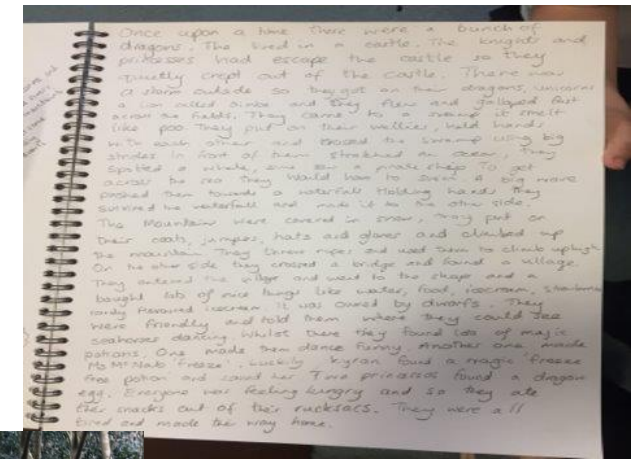 Once upon a time there were a bunch of
dragons. The lived in a castle. The knights and
princesses had escape the castle so they
quietly crept out of the castle. There was
a storm outside so they got on their dragons, unicorns
a lion called and they flew and galloped fast
across the fields. They came to a swamp it smelt
like poo. They put on their wellies, held hands
with each other and crossed the swamp using big
strides in front of them stretched an ocean, they
spotted a whale, and a pirate ship. To get
across the sea they would have to swim. A big wave
pushed them towards a waterfall. Holding hands they
survived the waterfall and made it to the other side.
The Mountain were covered in snow, they put on
their coats, jumpers, hats and gloves and climbed up
the mountain. They threw ropes and used them to climb up high
On the other side they crossed a bridge and found a village.
They entered the village and went to the shops and a
bought lots of nice things like water, food, icecream,
candy flavoured icecream. It was owned by dwarfs. They
were friendly and told them where they could see
seahorses dancing. Whilst there they found lots of magic
potions. One made them dance funny. Another one made
Ms McNab 'freeze'. Luckily Kyran found a magic 'freeze
free potion and saved her Two princesses found a dragon
egg. Everyone was feeling hungry and so they ate
their snacks out of their rucksacs. They were all
tired and made the way home.